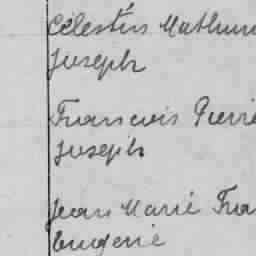 Célestin Mathurin
Joseph
Francois Pierre
Joseph
Jean Marie Fra
Eugene